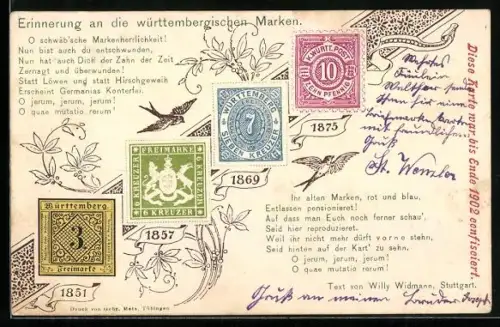 Erinnerung an die württembergischen Marken.
O schwäb'sche Markenherrlichkeit!
Nun bist auch du entschwunden,
Nun hat auch Dich der Zahn der Zeit
Zernagt und überwunden!
Statt Löwen und statt Hirschgeweih
Erscheint Germanias Konterfei.
O jerum, jerum, jerum!
O quae mutatio rerum!
K. WÜRTT. POST
10
ZEHN PFENNIG
1875
WÜRTTEMBERG
7
SIEBEN KREUZER
1869
FREIMARKE
6 KREUZER
6 KREUZER
6 KREUZER
1857
Württemberg
3
Freimarke
1851
Druck von
Metz, Tübingen
Ihr alten Marken, rot und blau,
Entlassen pensionieret!
Auf dass man Euch noch ferner schau',
Seid hier reproduzieret.
Weil ihr nicht mehr dürft vorne stehn,
Seid hinten auf der Kart' zu sehn,
O jerum, jerum, jerum!
O quae mutatio rerum!
Text von Willy Widmann, Stuttgart.
Diese Karte war bis Ende 1902 confisciert.
Fräulein
mit freundlichem
Gruß
Gruß an meinen